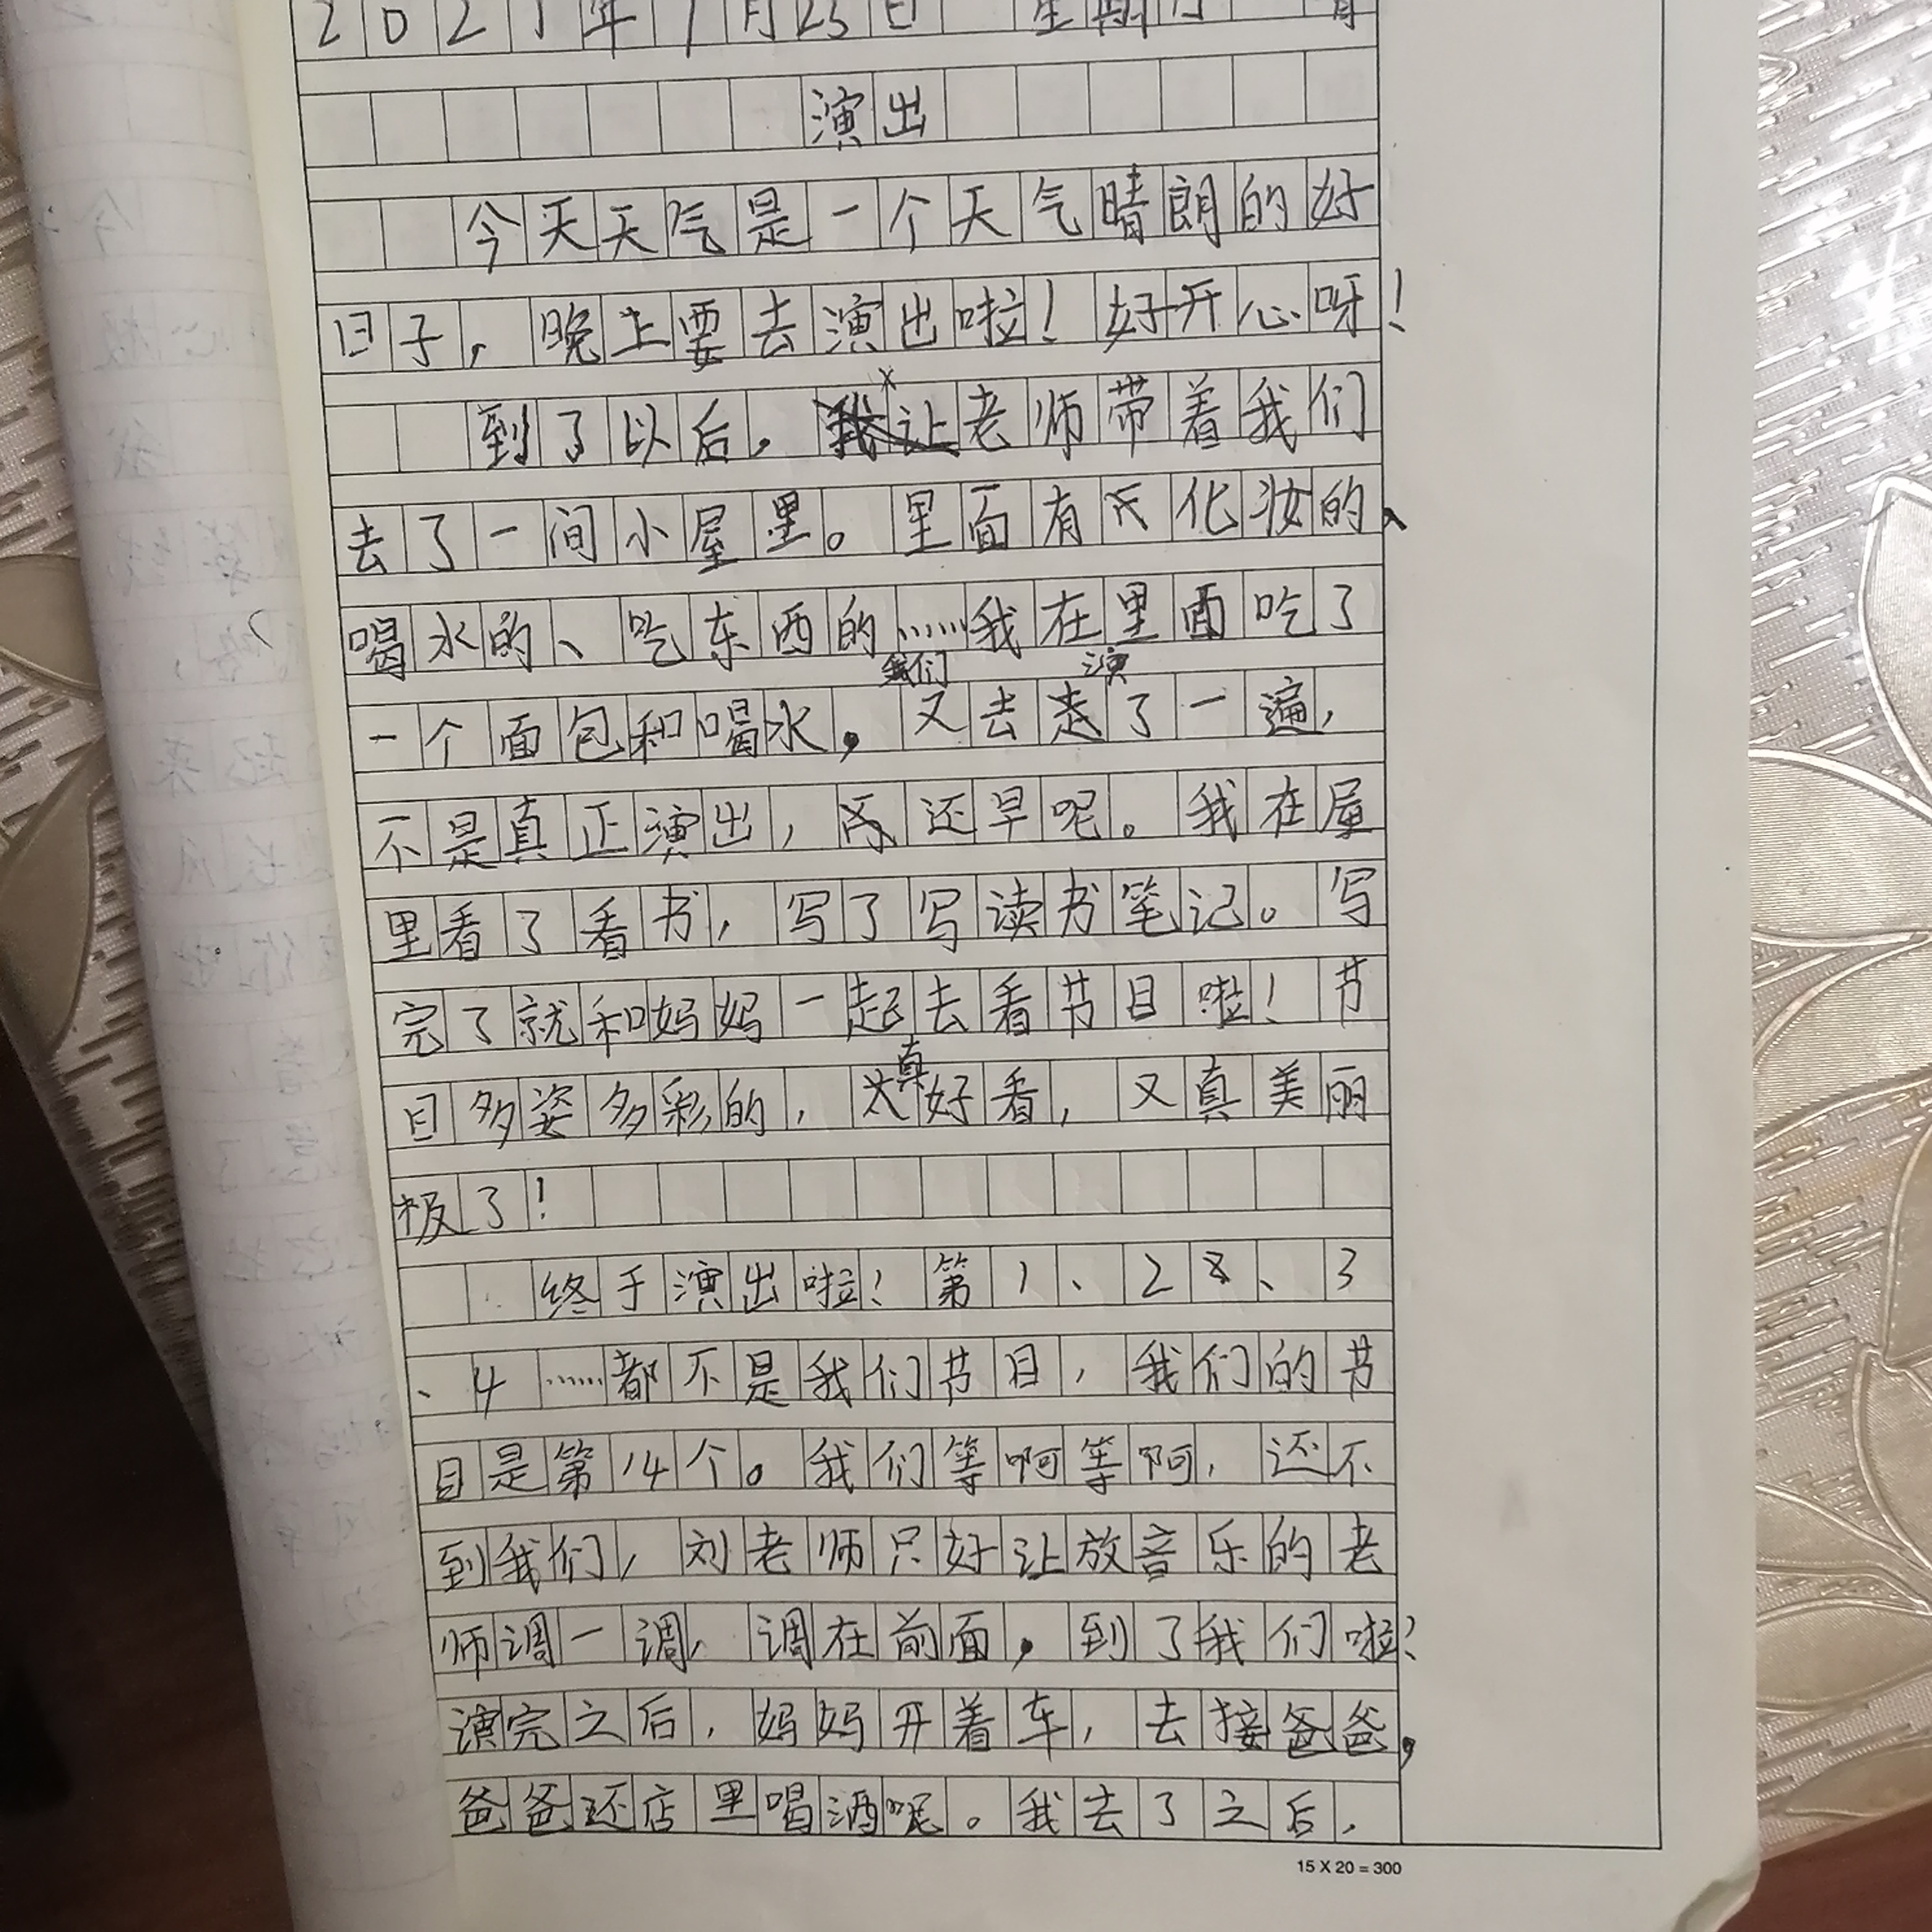 2021年1月25日 星期 晴
演出
今天天气是一个天气晴朗的好
日子，晚上要去演出啦！好开心呀！
到了以后，老师带着我们
去了一间小屋里。里面有化妆的、
喝水的、吃东西的……我在里面吃了
一个面包和喝水，我们又去演了一遍，
不是真正演出，还早呢。我在屋
里看了看书，写了写读书笔记。写
完了就和妈妈一起去看节目啦！节
目多姿多彩的，真好看，又真美丽
极了！
终于演出啦！第1、2、3
、4……都不是我们节目，我们的节
目是第14个。我们等啊等啊，还不
到我们，刘老师只好让放音乐的老
师调一调，调在前面，到了我们啦！
演完之后，妈妈开着车，去接爸爸，
爸爸还店里喝酒呢。我去了之后，
15 X 20 = 300